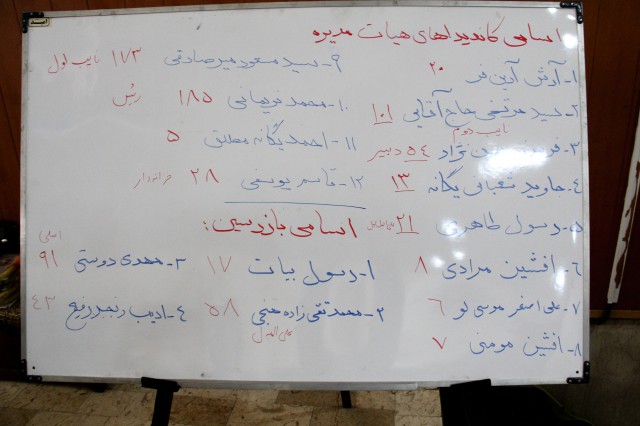 اسامی کاندیداهای هیات مدیره
۱- آرش آذین فر ۲۰
۲- سید مرتضی حاج آقایی ۱۰۱
نایب دوم
۳- نژاد ۵۴ دبیر
۴- جاوید شعبانی یگانه ۱۳
۵- رسول طاهری ۲۱
۶- افشین مرادی ۸
۷- علی اصغر موسی لو ۶
۸- افشین مومنی ۷
۹- سید مسعود میرصادقی ۱۷۳ نایب اول
۱۰- محمد نریمانی ۱۸۵ رئیس
۱۱- احمد یگانه مطلق ۵
۱۲- قاسم یوسفی ۲۸ خزانه دار
اسامی بازرسین:
۱- رسول بیات ۱۷
۲- محمد تقی زاده خنجی ۵۸
علی البدل
اصلی
۳- مهدی دوستی ۹۱
۴- ادیب رنجبر رفیع ۴۳